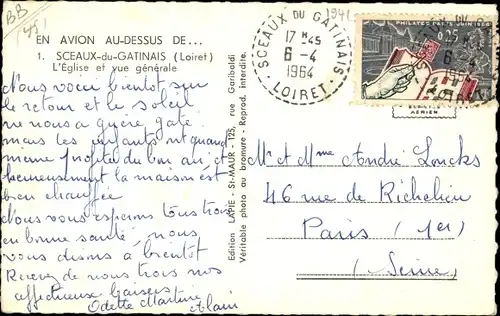 BB
(45)
1941
EN AVION AU-DESSUS DE...
1. SCEAUX-du-GATINAIS (Loiret)
L'Église et vue générale
SCEAUX DU GATINAIS
17 H -45
6 -4
1964
LOIRET
PHILATEC PARIS JUIN 1964
0,25
AÉRIEN
Edition LAPIE - St-MAUR - 125, rue Garibaldi
Véritable photo au bromure - Reprod. interdite.
Nous voici bientôt sur
le retour et le soleil
ne nous a guère gaté
mais les enfants ont quand
même profité du bon air et
heureusement la maison est
bien chauffée
Nous vous espérons tous trois
en bonne santé, nous
vous disons à bientôt
Recevez de nous trois nos
affectueux baisers
Odette Martine
Alain
Mr et Mme André Loucks
46 rue de Richelieu
Paris (1er)
(Seine)